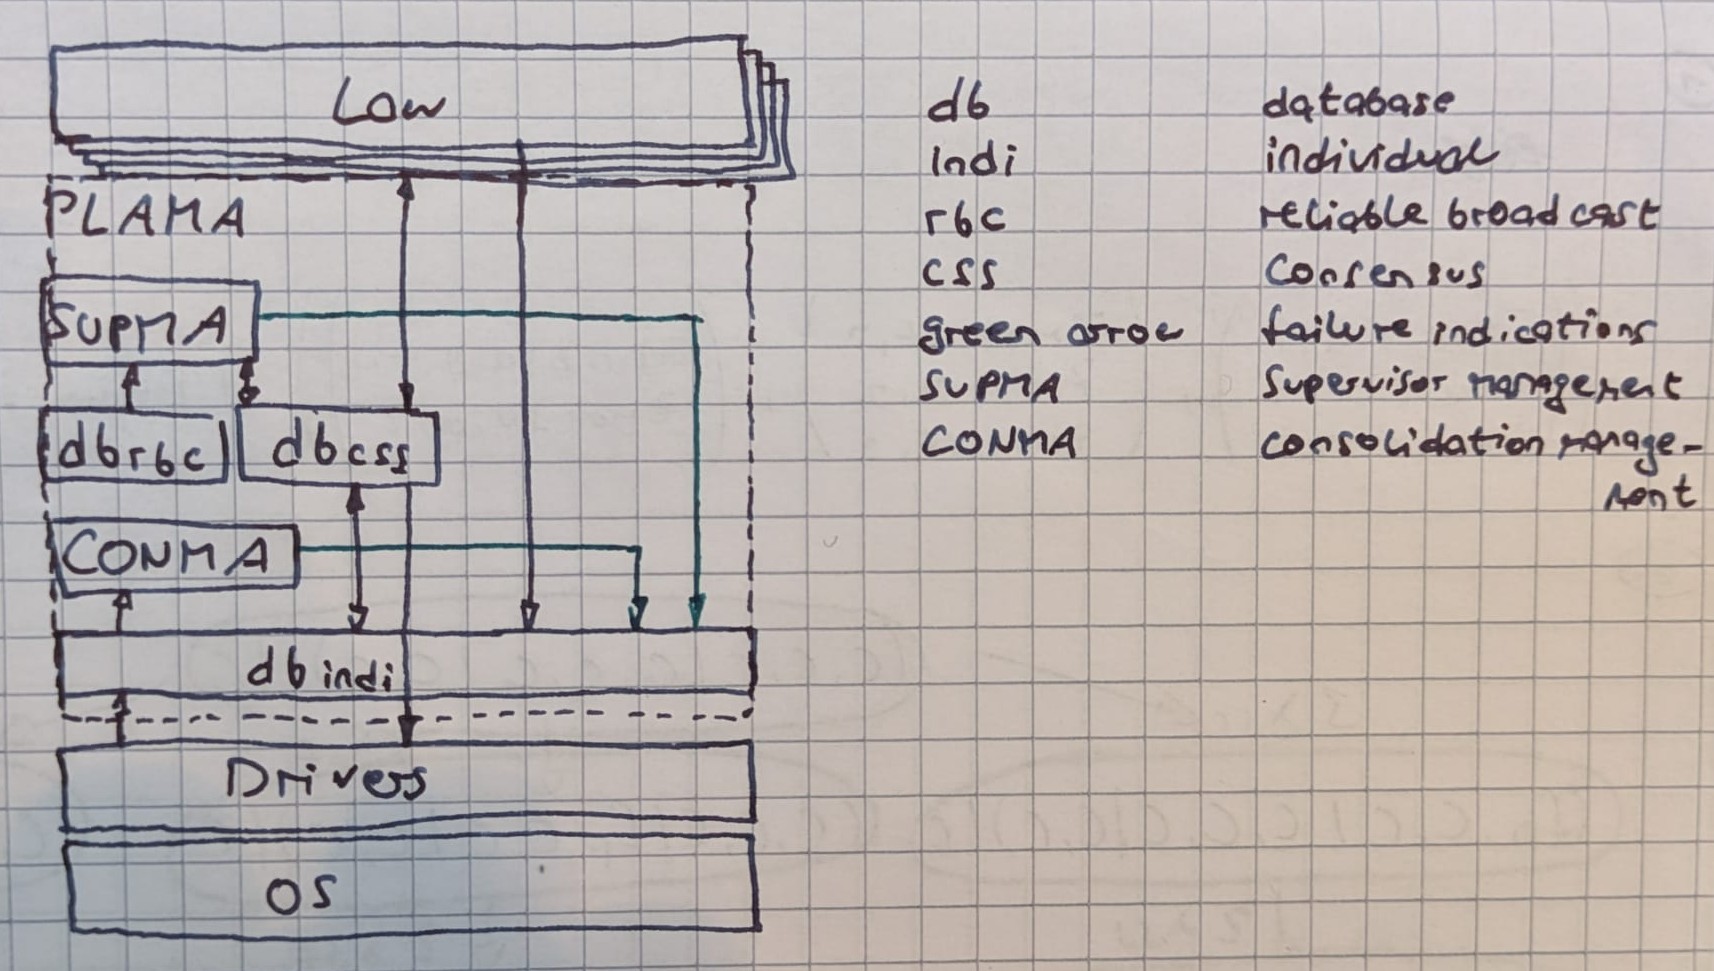 Low
PLAMA
SUPMA
db rbc
db css
CONMA
db indi
Drivers
OS
db database
Indi individual
rbc reliable broadcast
css Consensus
green arroe failure indications
SUPMA Supervisor management
CONMA consolidation manage-
ment